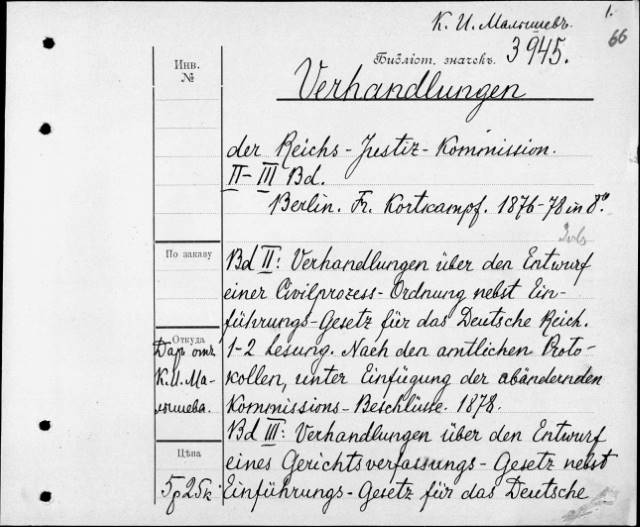 К. И. Малышевъ.
1.
66
Инв.
№
Библіот. значекъ. 3945.
Verhandlungen
der Reichs-Justiz-Kommission.
II-III Bd.
Berlin. Fr. Kortkampf. 1876-78 in 8º.
По заказу
Bd II: Verhandlungen über den Entwurf
einer Civilprozess-Ordnung nebst Ein-
führungs-Gesetz für das Deutsche Reich.
1-2 Lesung. Nach den amtlichen Proto-
kollen, unter Einfügung der abändernden
Kommissions-Beschlüsse. 1878.
Откуда
Даръ отъ
К. И. Ма-
лышева.
Bd III: Verhandlungen über den Entwurf
eines Gerichtsverfassungs-Gesetz nebst
Einführungs-Gesetz für das Deutsche
Цѣна
5р25к